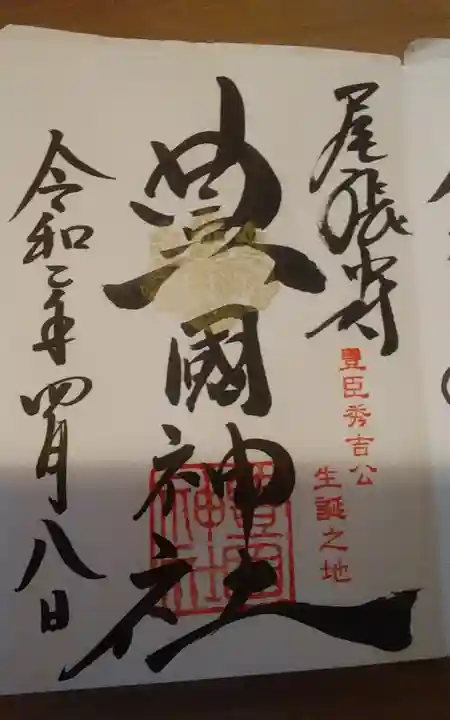 尾張中村
豐臣秀吉公
生誕之地
豊國神社
令和二年四月八日